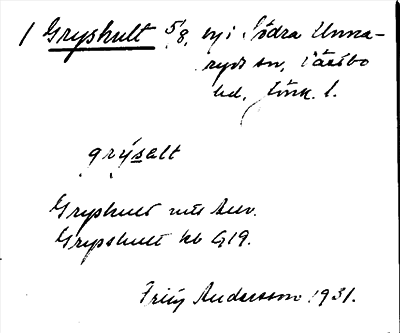 1 Gryshult 5/8, by i Södra Unna-
ryds sn, Västbo
hd, Jönk. l.
grýsalt
Gryshult
Grypshult kb G19.
Fritz Andersson 1931.